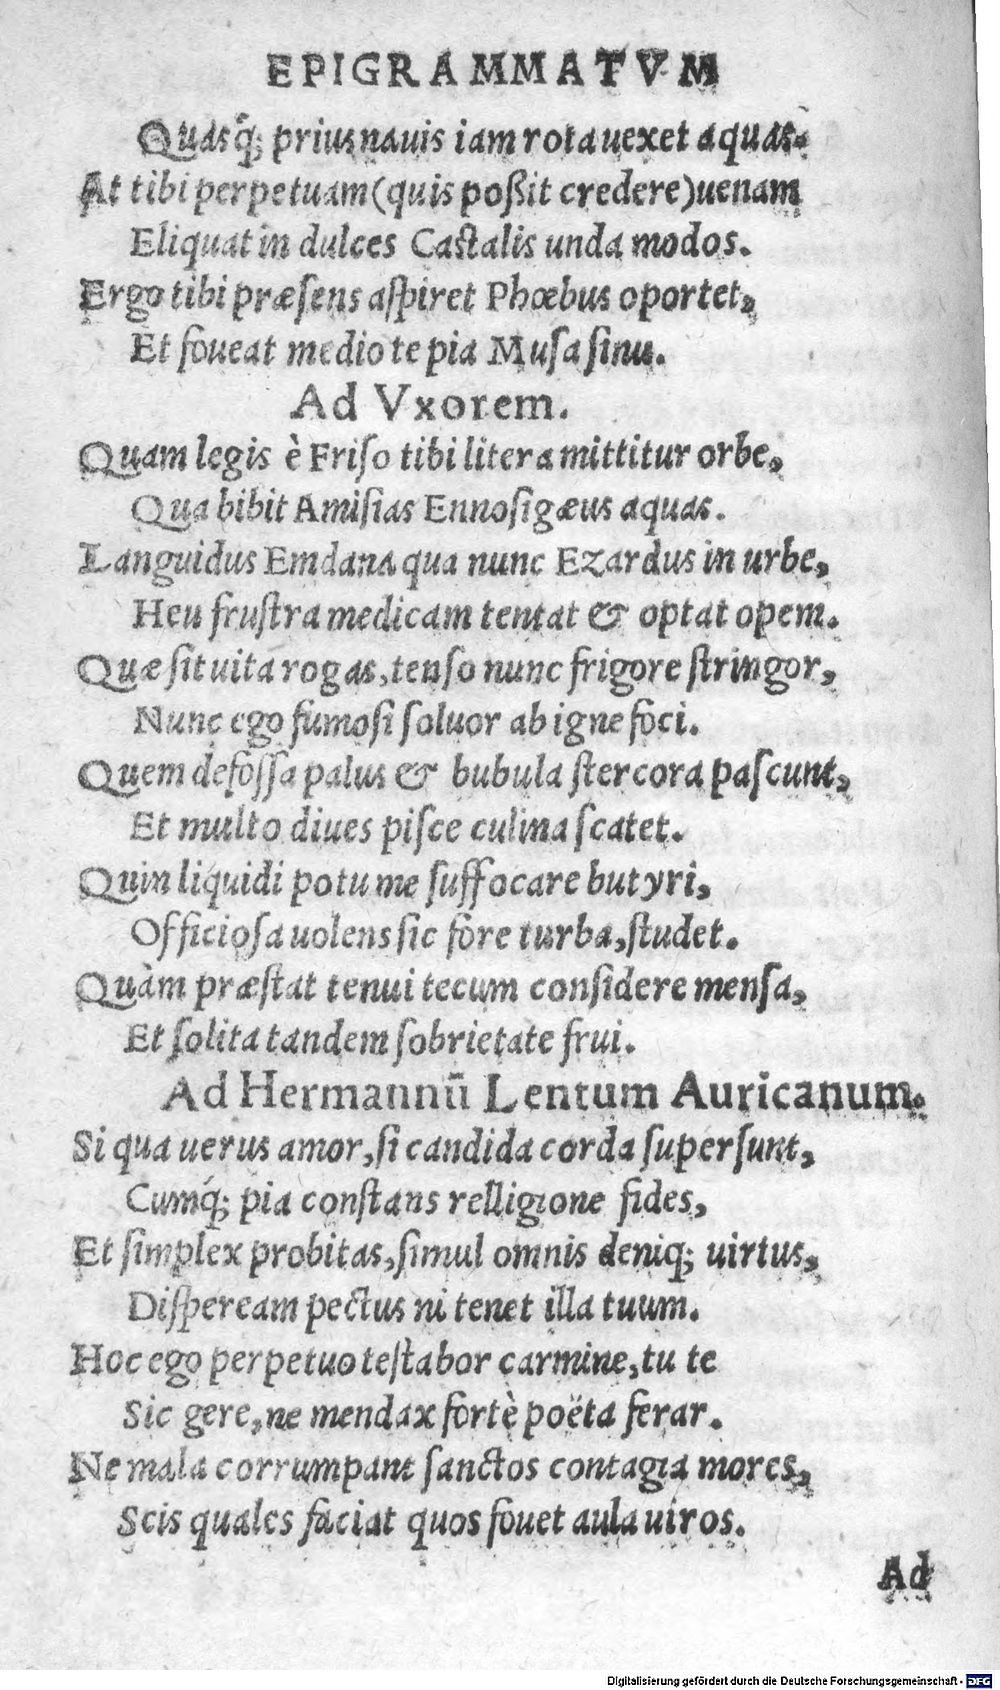 EPIGRAMMATVM
Quasq́; prius nauis iam rota uexet aquas.
At tibi perpetuam (quis poßit credere) uenam
Eliquat in dulces Castalis unda modos.
Ergo tibi præſens aſpiret Phœbus oportet,
Et foueat medio te pia Muſa ſinu.
Ad Vxorem.
Quam legis è Friſo tibi litera mittitur orbe,
Qua bibit Amiſias Ennoſigæus aquas.
Languidus Emdana qua nunc Ezardus in urbe,
Heu fruſtra medicam tentat & optat opem.
Quæ ſit uita rogas, tenſo nunc frigore ſtringor,
Nunc ego fumoſi ſoluor ab igne foci.
Quem defoſſa palus & bubula ſtercora paſcunt,
Et multo diues piſce culina ſcatet.
Quin liquidi potu me ſuffocare butyri,
Officioſa uolens ſic fore turba, ſtudet.
Quàm præſtat tenui tecum conſidere menſa,
Et ſolita tandem ſobrietate frui.
Ad Hermannū Lentum Auricanum.
Si qua uerus amor, ſi candida corda ſuperſunt,
Cumq́; pia conſtans relligione fides,
Et ſimplex probitas, ſimul omnis deniq; uirtus,
Diſpeream pectus ni tenet illa tuum.
Hoc ego perpetuo teſtabor carmine, tu te
Sic gere, ne mendax fortè poëta ferar.
Ne mala corrumpant ſanctos contagia mores,
Scis quales faciat quos fouet aula uiros.
Ad
Digitalisierung gefördert durch die Deutsche Forschungsgemeinschaft - DFG